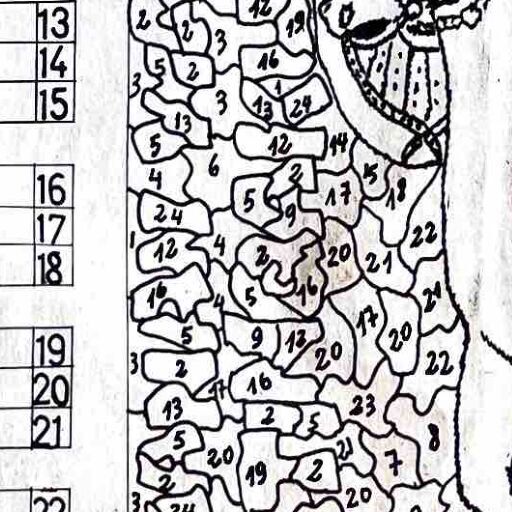 13
14
15
16
17
18
19
20
21
22
2 2 12 19
3
5 2 16
3 3 1
13 13 24
5 12 14
4 6 2 15
5 17 18
24 9
1 12 4 2 20 21 22
16 4 5 16 21
5 9 13 17 20
3 2 20 22
17 16
13 2 5 23
5 20 21 8
2 19 2 7
3 24 20